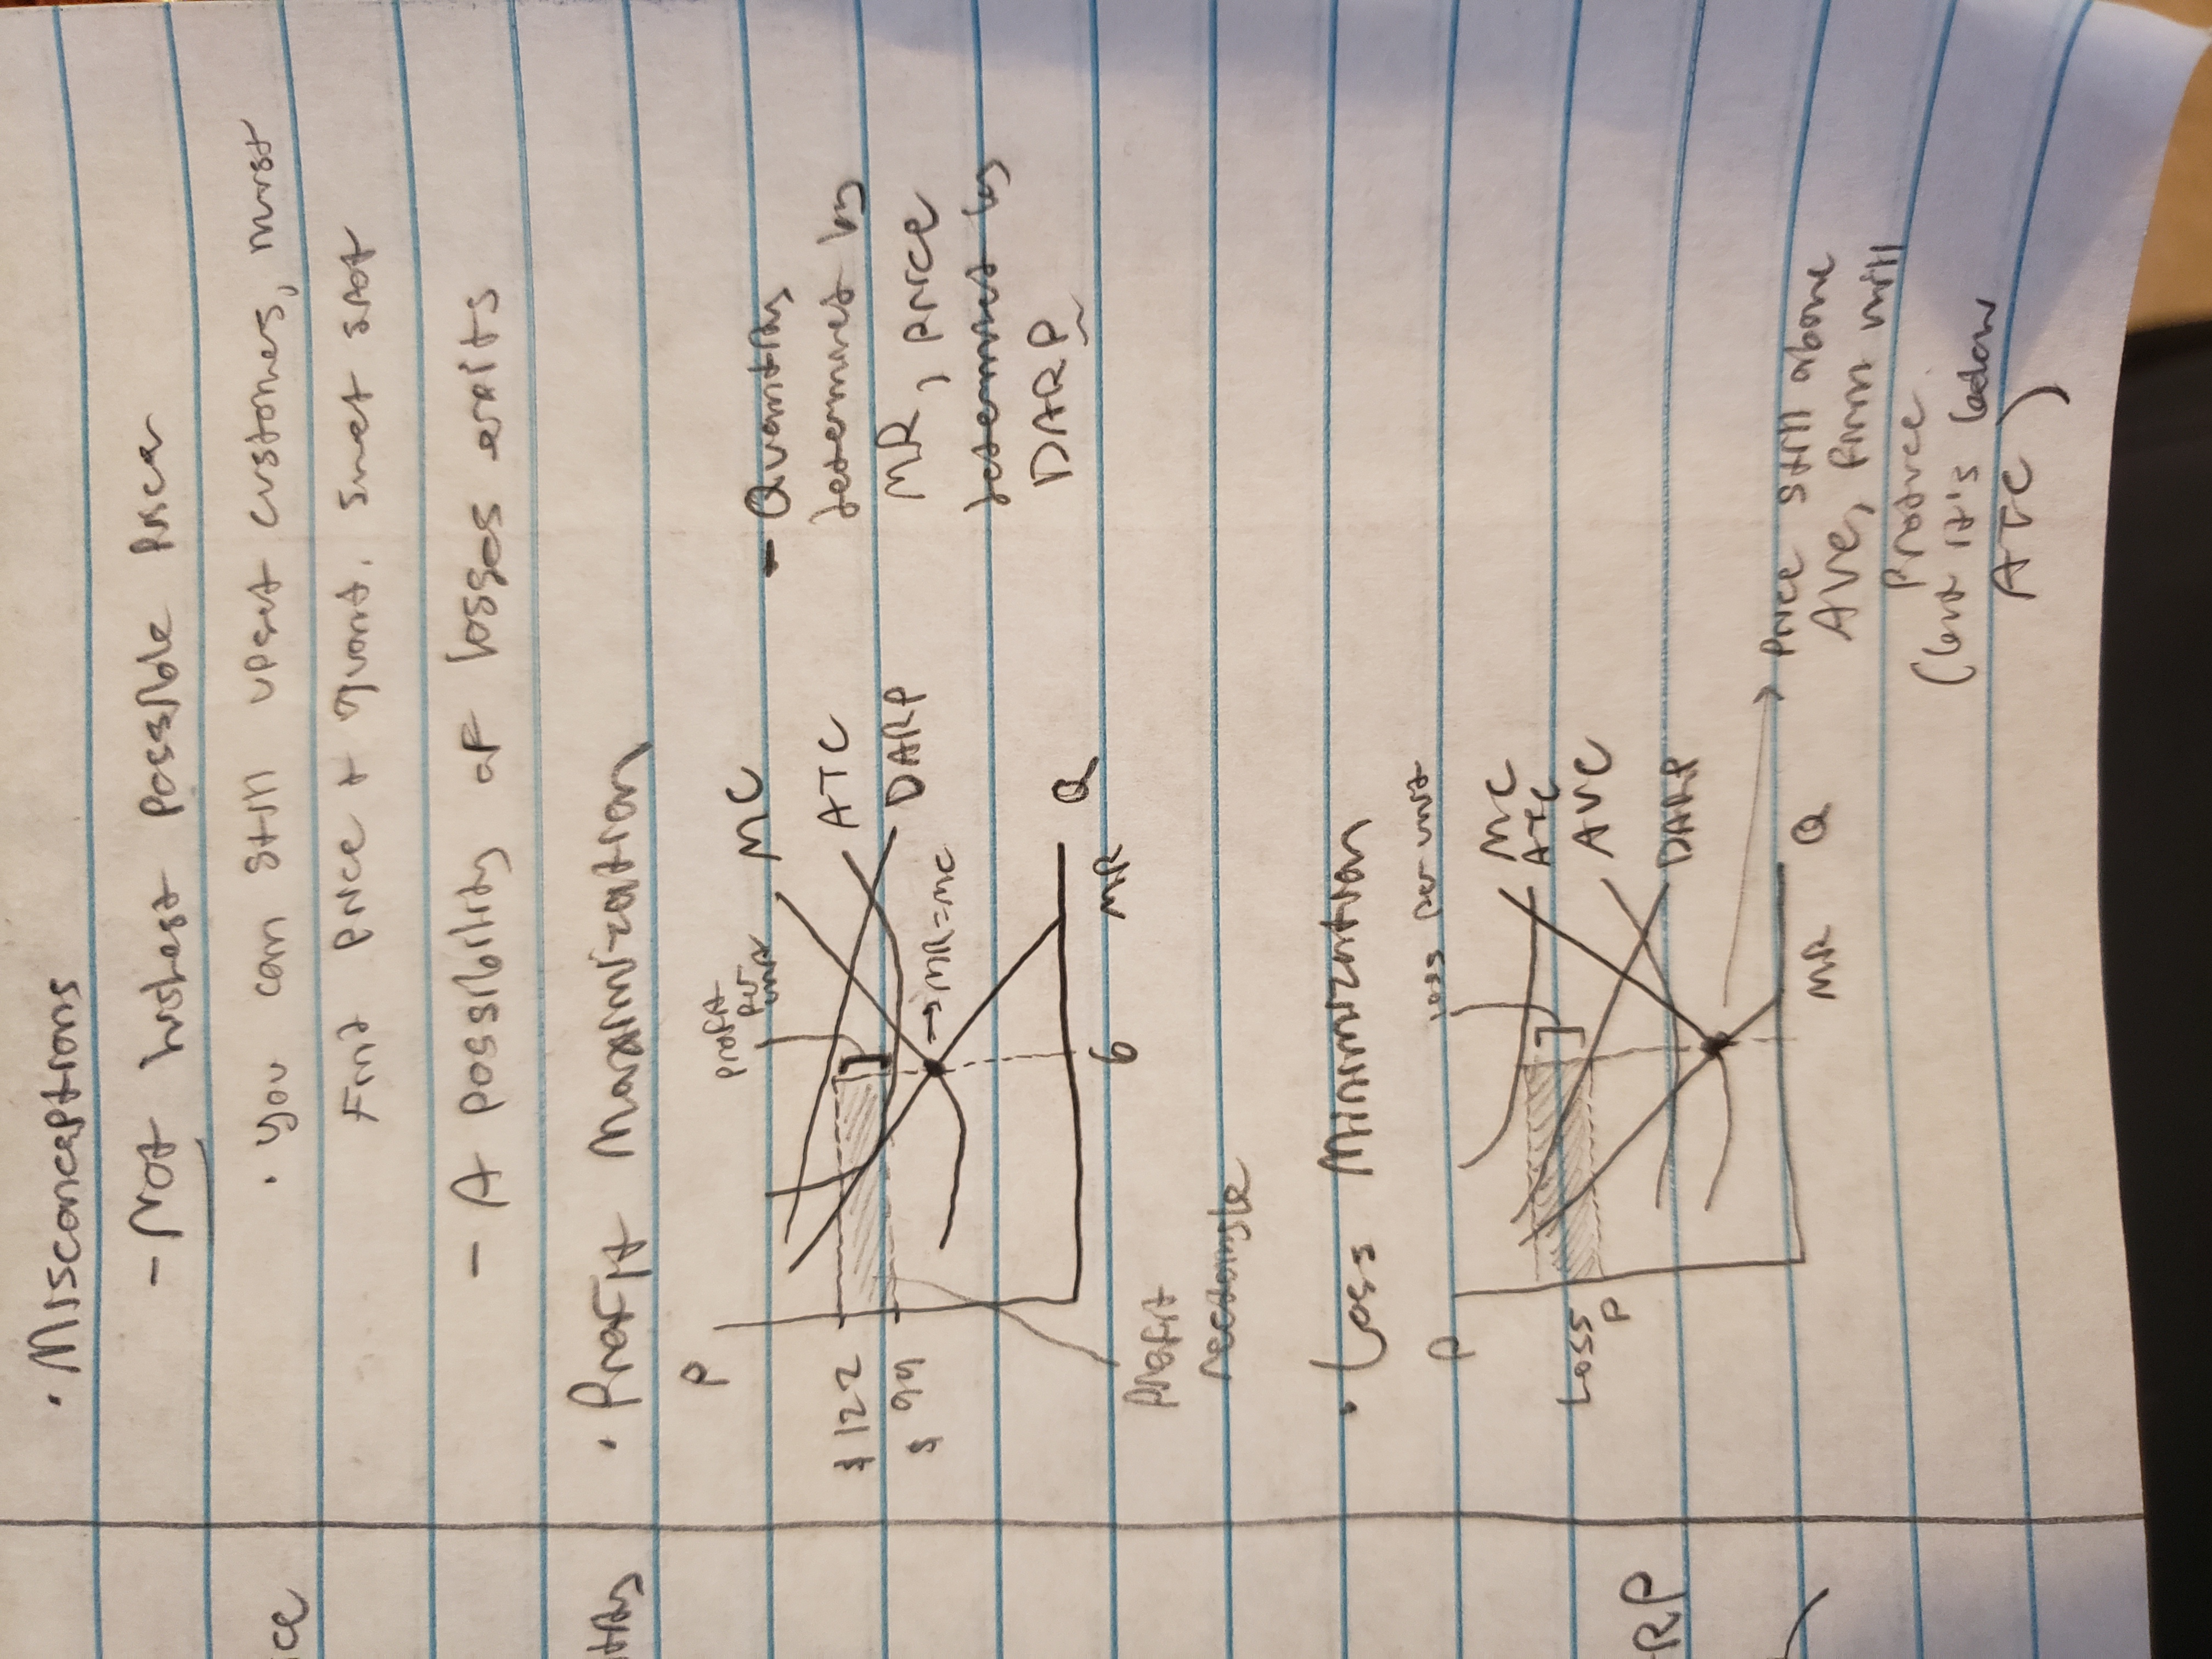 • Misconceptions
- Not highest possible price
• you can still upset customers, must
find price + quant. sweet spot
- A possibility of losses exits
• Profit Maximization
P
profit
per
unit
MC
ATC
DARP
$122
$99
→ MR=MC
Q
MR
6
Profit
rectangle
- Quantity
determined by
MR, price
determined by
DARP
• Loss Minimization
P
loss per unit
MC
ATC
AVC
DARP
Loss
P
Q
MR
→ Price still above
AVC, firm will
produce
(but it's below
ATC)
ice
RP